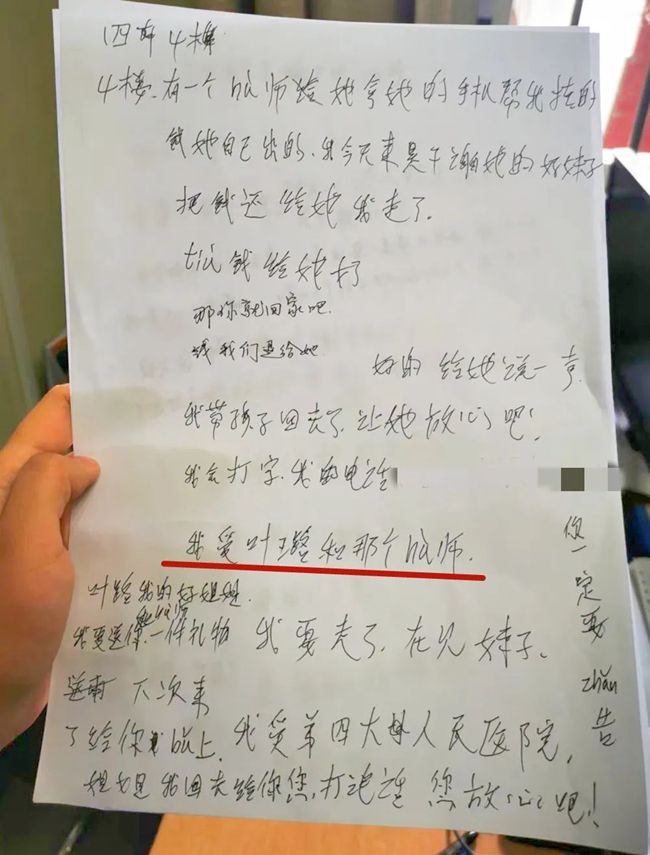 四 4楼
4楼.有一个hu师给她拿她的手机帮我挂的
钱她自己出的.我今天来是干谢她的好妹子
把钱还给她我走了.
钱给她打
那你就回家吧.
钱我们退给她
好的 给她说一声.
我带孩子回去了.让她放心吧!
我会打字.我的电话
我爱叶璐和那个hu师.
叶璐我的好姐姐.
我要送你一件礼物 我要走了.在见妹子.
下次来
了给你 上.我爱第四大 人民医院,
我回去给你您,打电话 您放心吧!
您一定要zhǎn告